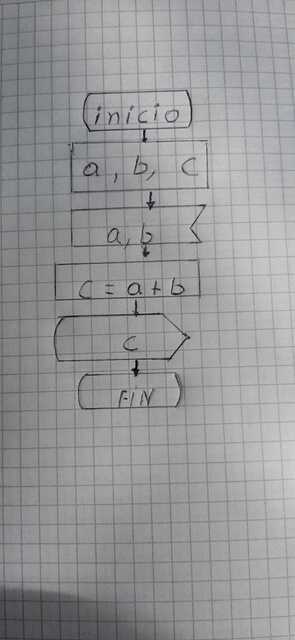 inicio
a, b, c
a, b
c = a + b
c
FIN